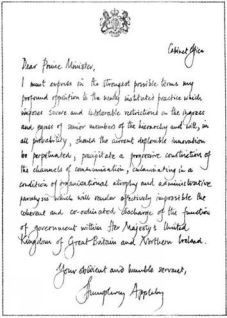 Cabinet Office
Dear Prime Minister,
I must express in the strongest possible terms my
profound opposition to the newly instituted practice which
imposes severe and intolerable restrictions on the ingress
and egress of senior members of the hierarchy and will, in
all probability, should the current deplorable innovation
be perpetuated, precipitate a progressive constriction of
the channels of communication, culminating in a
condition of organisational atrophy and administrative
paralysis which will render effectively impossible the
coherent and co-ordinated discharge of the function
of government within Her Majesty's United
Kingdom of Great Britain and Northern Ireland.
Your obedient and humble servant,
Humphrey Appleby